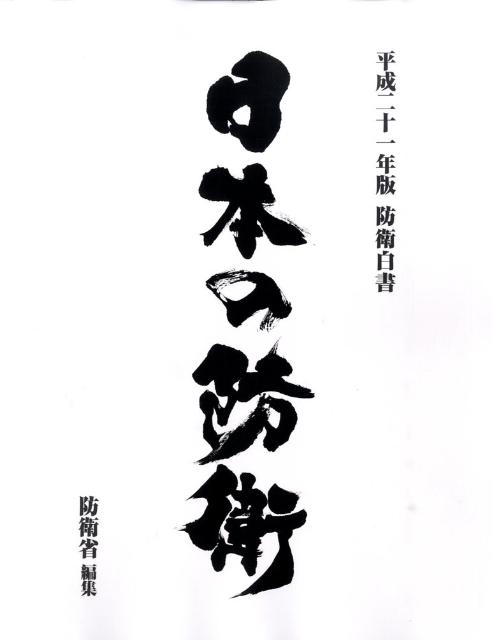 平成二十一年版 防衛白書
日本の防衛
防衛省 編集